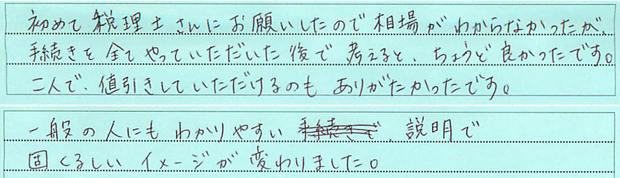 初めて税理士さんにお願いしたので相場がわからなかったが、
手続きを全てやっていただいた後で考えると、ちょうど良かったです。
二人で、値引きしていただけるのもありがたかったです。
一般の人にもわかりやすい 手続きで 説明で
固くるしいイメージが変わりました。